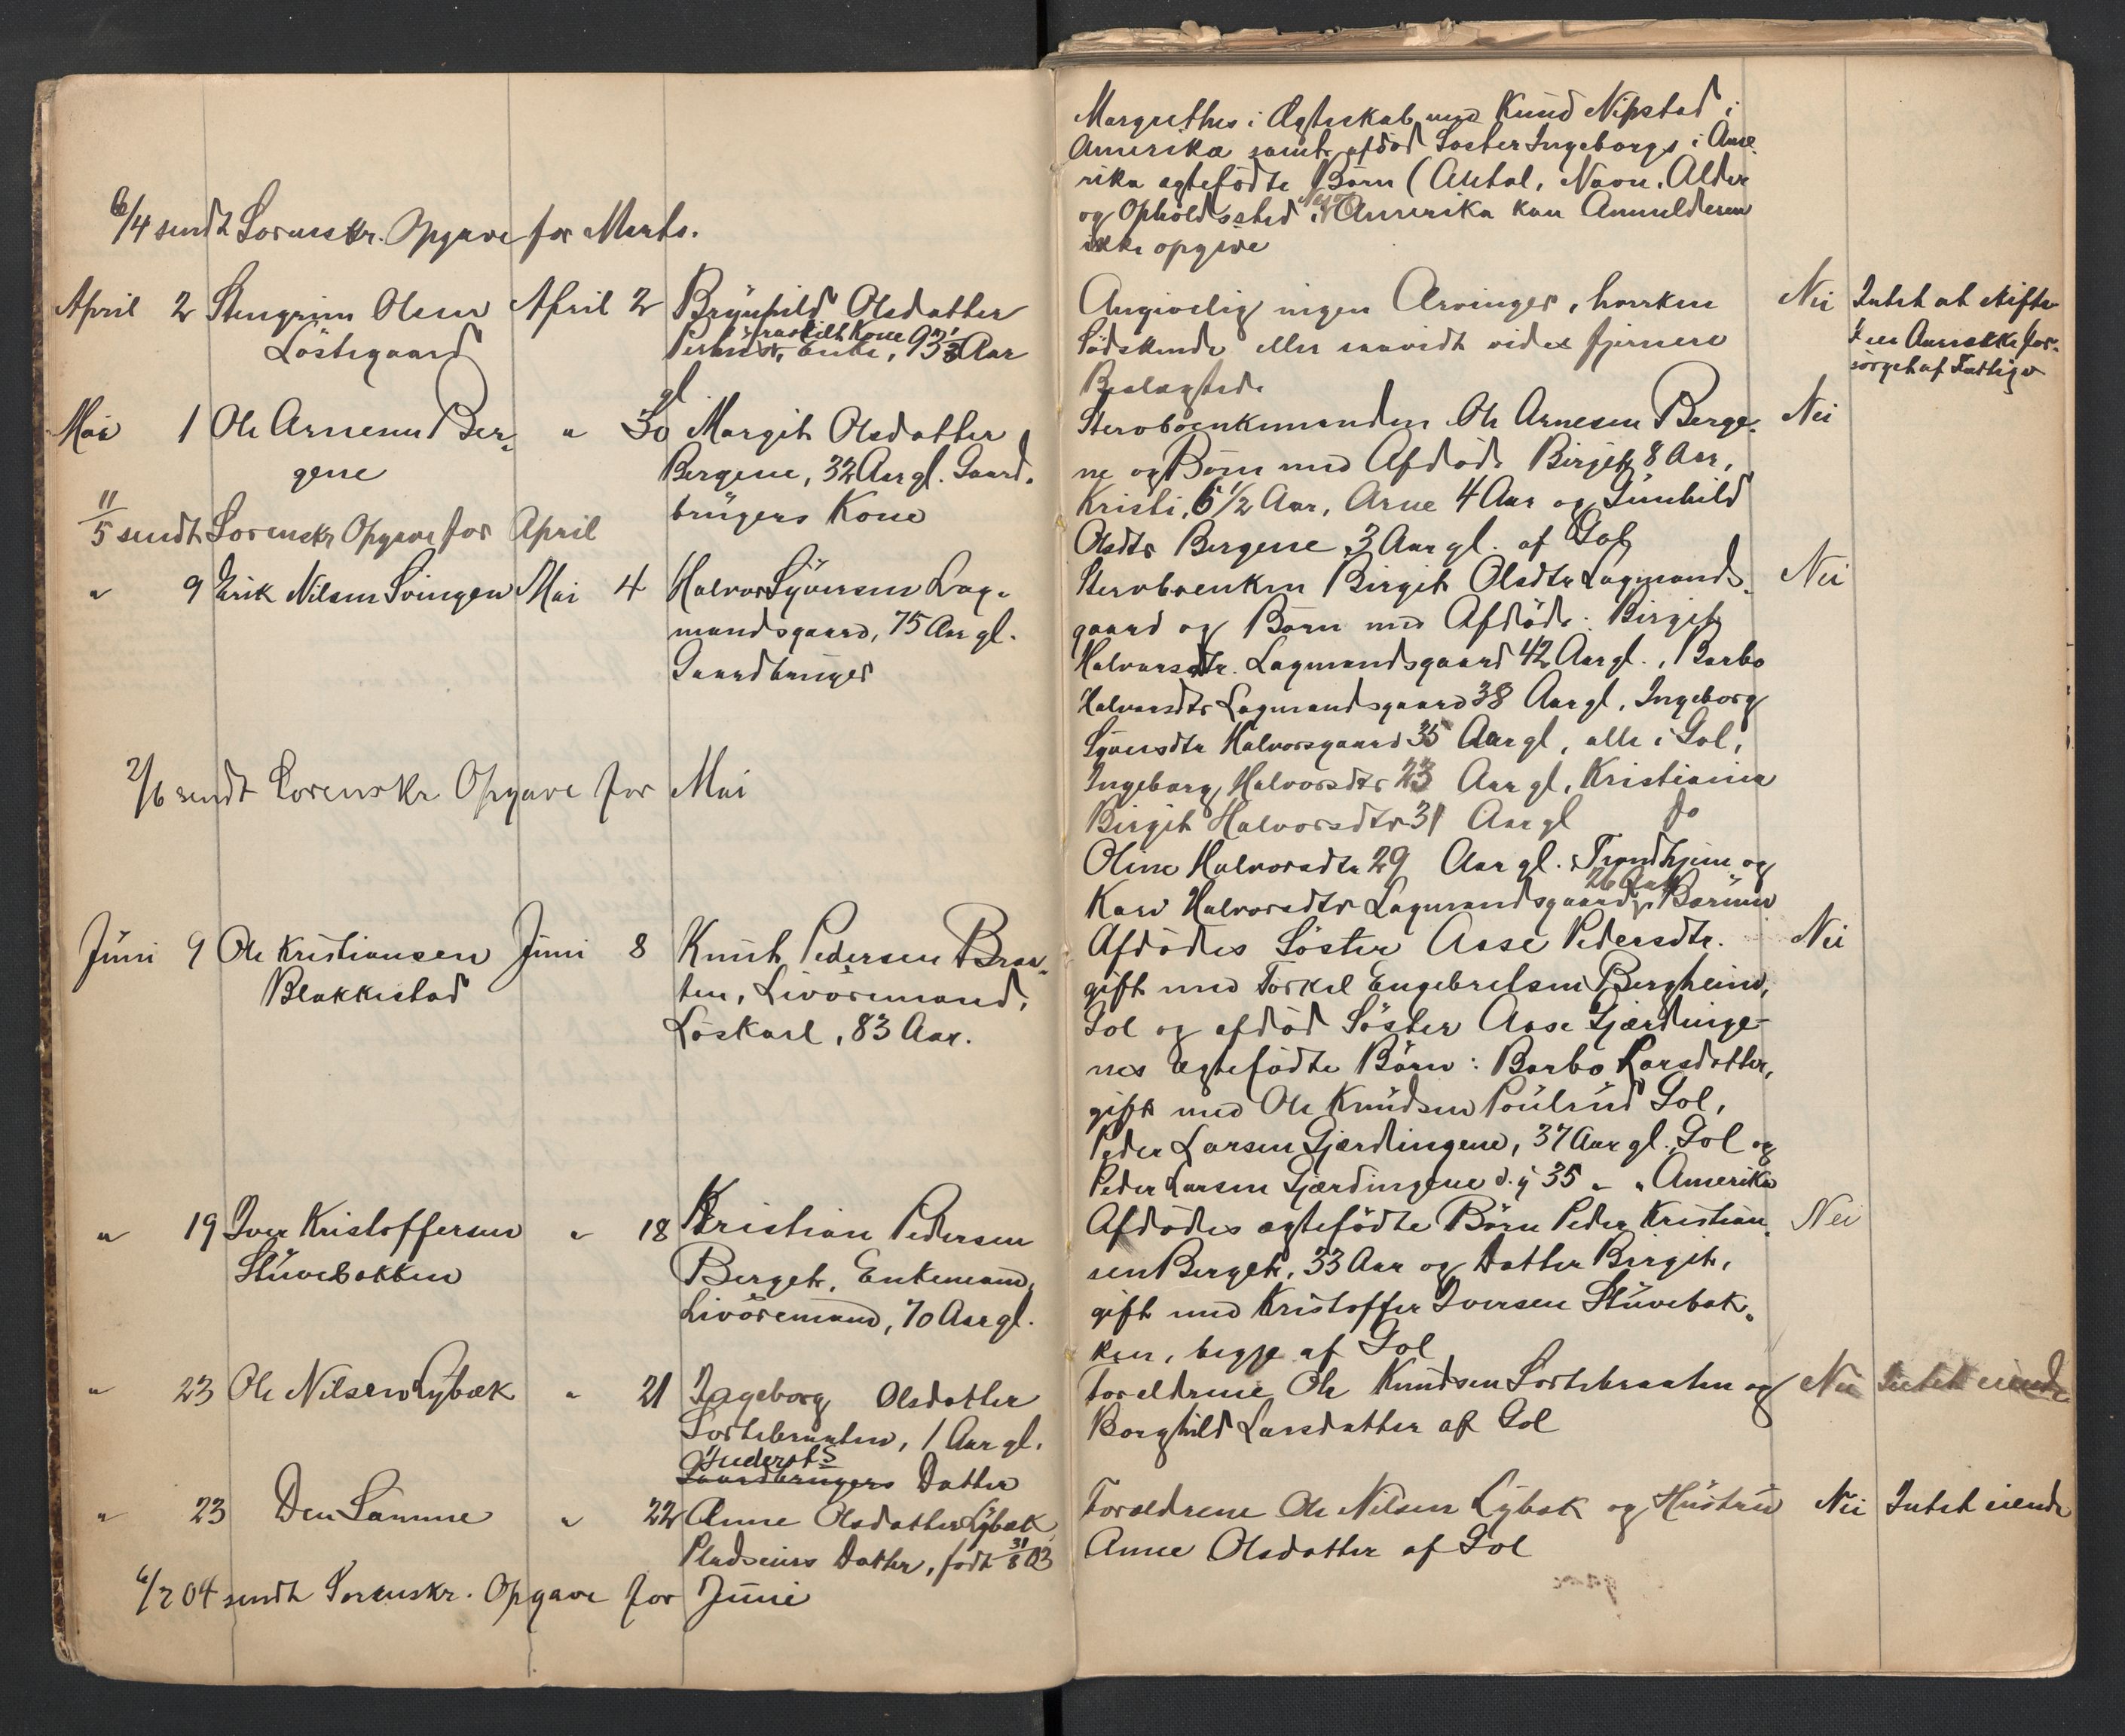 6/4 sendt Sorenskr. Opgave for Marts.
April 2 Stengrim Olsen April 2 Brynhild Olsdatter
Löstegaard fraskilt Kone
Enke, 93 1/2 Aar
Mai 1 Ole Arnesen Ber- " 30 Margit Olsdatter
gene Bergene, 32 Aar gl. Gaard-
brugers Kone
11/5 sendt Sorenskr Opgave for April
" 9 Erik Nilsen Svingen Mai 4 Halvor Syversen Lag-
mandsgaard, 75 Aar gl.
Gaardbruger
2/6 sendt Sorenskr Opgave for Mai
Juni 9 Ole Kristiansen Juni 8 Knut Pedersen Braa-
Blakkestad ten, Livöremand,
Löskarl, 83 Aar.
" 19 Iver Kristoffersen " 18 Kristian Pedersen
Stuvebakken Berget, Enkemand,
Livöremand, 70 Aar gl.
" 23 Ole Nilsen Lybæk " 21 Ingeborg Olsdatter
Sortebraaten, 1 Aar gl.
Inderst's
Gaardbrugers Datter
" 23 Den Samme " 22 Anne Olsdatter Lybæk
Pladseiers Datter, födt 31/8 03
6/7 04 sendt Sorenskr. Opgave for Juni
Margrethes i Ægteskab med Knud Nipstad i
Amerika samt afdöd Söster Ingeborgs i Ame-
rika ægtefödte Börn (Antal, Navn, Alder
og Opholdssted i Amerika kan Anmelderen
ikke opgive
Angivelig ingen Arvinger, hverken Nei Intet at skifte
Södskende eller saavidt vides fjernere
Beslægtede sörget af Fattigv
Stervboenkemanden Ole Arnesen Berge- Nei
ne og Börn med Afdöde Birgit 8 Aar,
Kristi, 6 1/2 Aar, Arne 4 Aar og Gunhild
Olsdtr Bergene 3 Aar gl. af Gol
Stervboenken Birgit Olsdtr Lagmands- Nei
gaard og Börn med Afdöde: Birgit
Halvorsdtr. Lagmandsgaard 42 Aar gl., Barbo
Halvorsdtr Lagmandsgaard 38 Aar gl, Ingeborg
Syversdtr Halvorsgaard 35 Aar gl, alle i Gol,
Ingeborg Halvorsdtr 23 Aar gl, Kristiania
Birgit Halvorsdtr 31 Aar gl do
Oline Halvorsdtr 29 Aar gl. Trondhjem og
26 Aar
Kari Halvorsdtr Lagmandsgaard, Bærum
Afdödes Söster Asse Pedersdtr. Nei
gift med Torkel Engebretsen Bergheim,
Gol og afdöd Söster Aase Gjærdinge-
nes ægtefödte Börn: Barbo Larsdatter,
gift med Ole Knudsen Poulsrud Gol,
Peder Larsen Gjærdingene, 37 Aar gl. Gol og
Peder Larsen Gjærdingene d.y 35 " " Amerika
Afdödes ægtefödte Börn Peder Kristian- Nei
sen Berget, 33 Aar og Datter Birgit,
gift med Kristoffer Iversen Stuvebak-
ken, begge af Gol
Forældrene Ole Knudsen Sortebraaten og Nei Intet eiende
Borghild Larsdatter af Gol
Forældrene Ole Nilsen Lybæk og Hustru Nei Intet eiende
Anne Olsdatter af Gol